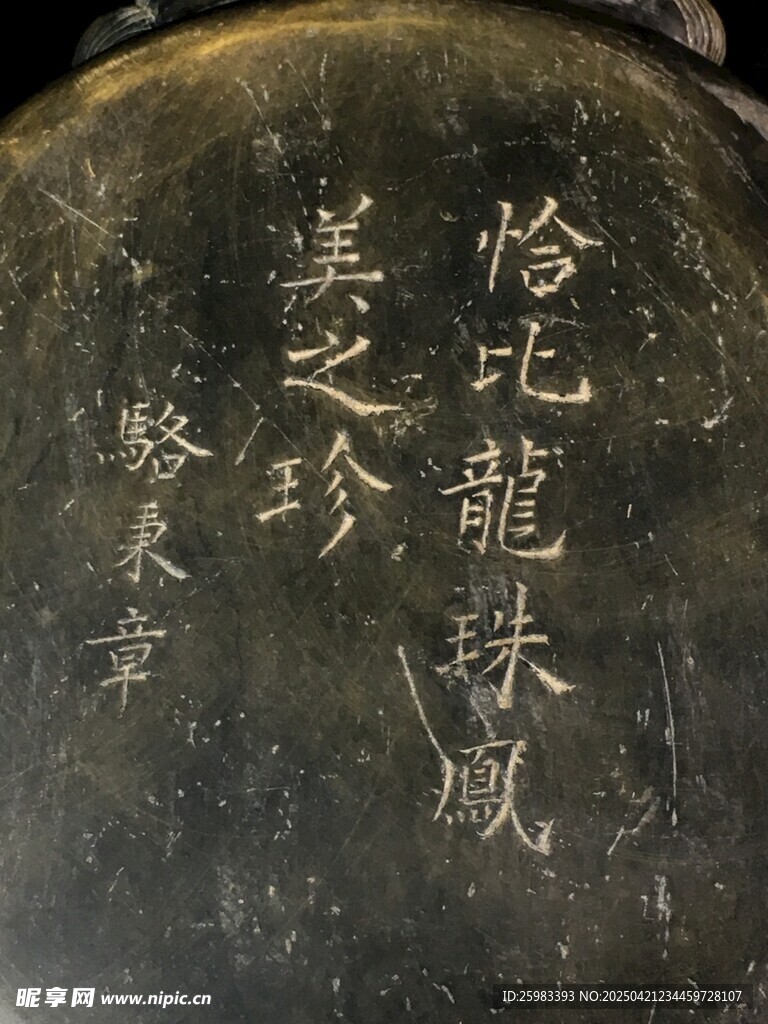 恰比龍珠鳳
美之珍
駱秉章
昵享网 www.nipic.cn
ID:25983393 NO:20250421234459728107